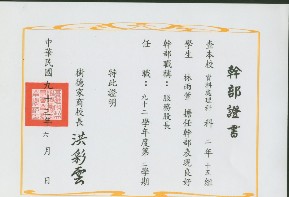 幹部證書
查本校 資料處理科 科 二年十五班
學生 林雨萱 擔任幹部表現良好
幹部職稱：服務股長
任 職：九十二學年度第二學期
特此證明
樹德家商校長 洪彩雲
中華民國九十三年六月 日